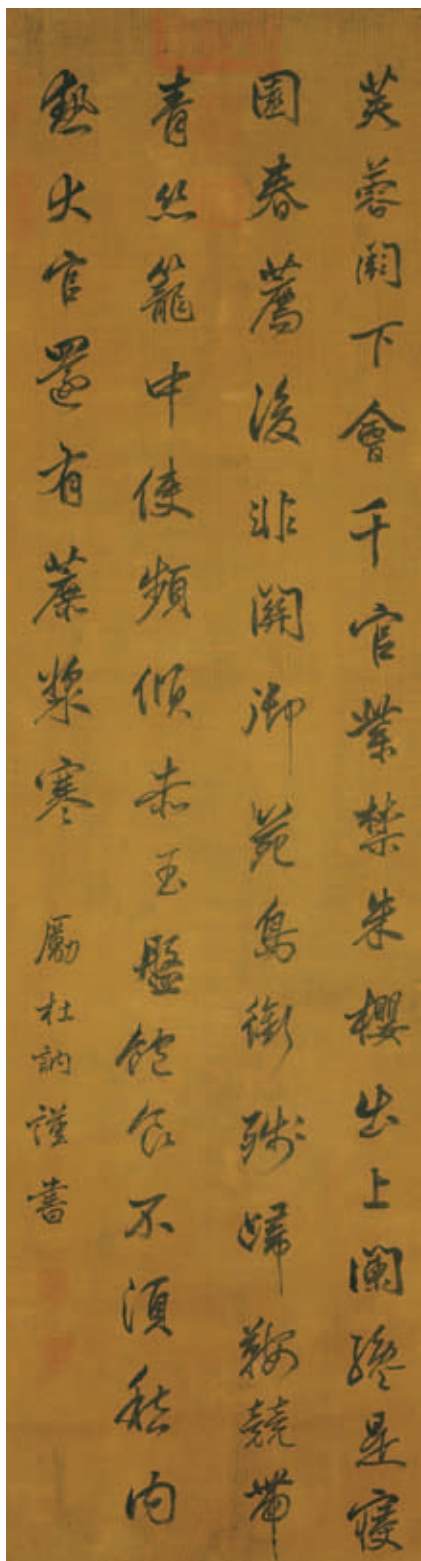 芙蓉闕下會千官紫禁朱櫻出上闌纔是寢
園春薦後非關御苑鳥銜殘歸鞍競帶
青絲籠中使頻傾赤玉盤飽食不須愁内
熱大官還有蔗漿寒
勵杜訥謹書